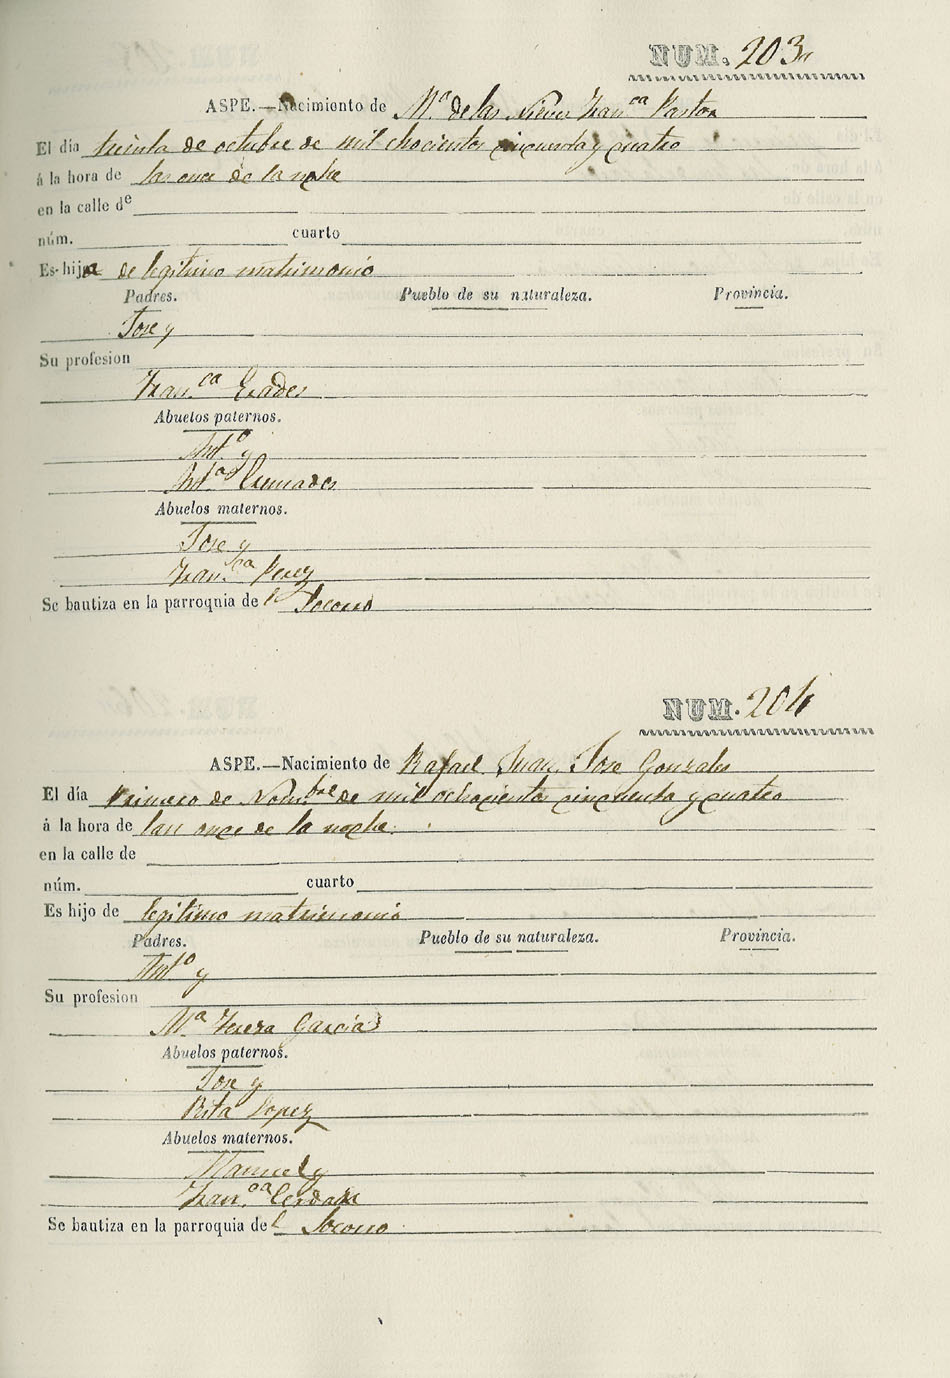 NUM. 203
ASPE.—Nacimiento de Mª de las Nieves Franca Pastor
El día treinta de octubre de mil ochocientos cincuenta y cuatro
á la hora de las once de la noche
en la calle de
núm. cuarto
Es hija de legitimo matrimonio
Padres. Pueblo de su naturaleza. Provincia.
Jose y
Su profesion
Franca Erades
Abuelos paternos.
Anto y
Anta Cremades
Abuelos maternos.
Jose y
Franca Perez
Se bautiza en la parroquia del Socorro
NUM. 204
ASPE.—Nacimiento de Rafael Juan Jose Gonzales
El día Primero de Novbre de mil ochocientos cincuenta y cuatro
á la hora de las once de la noche
en la calle de
núm. cuarto
Es hijo de legitimo matrimonio
Padres. Pueblo de su naturaleza. Provincia.
Anto y
Su profesion
Mª Teresa Garcia
Abuelos paternos.
Jose y
Rita Lopez
Abuelos maternos.
Manuel y
Franca Cerdan
Se bautiza en la parroquia del Socorro